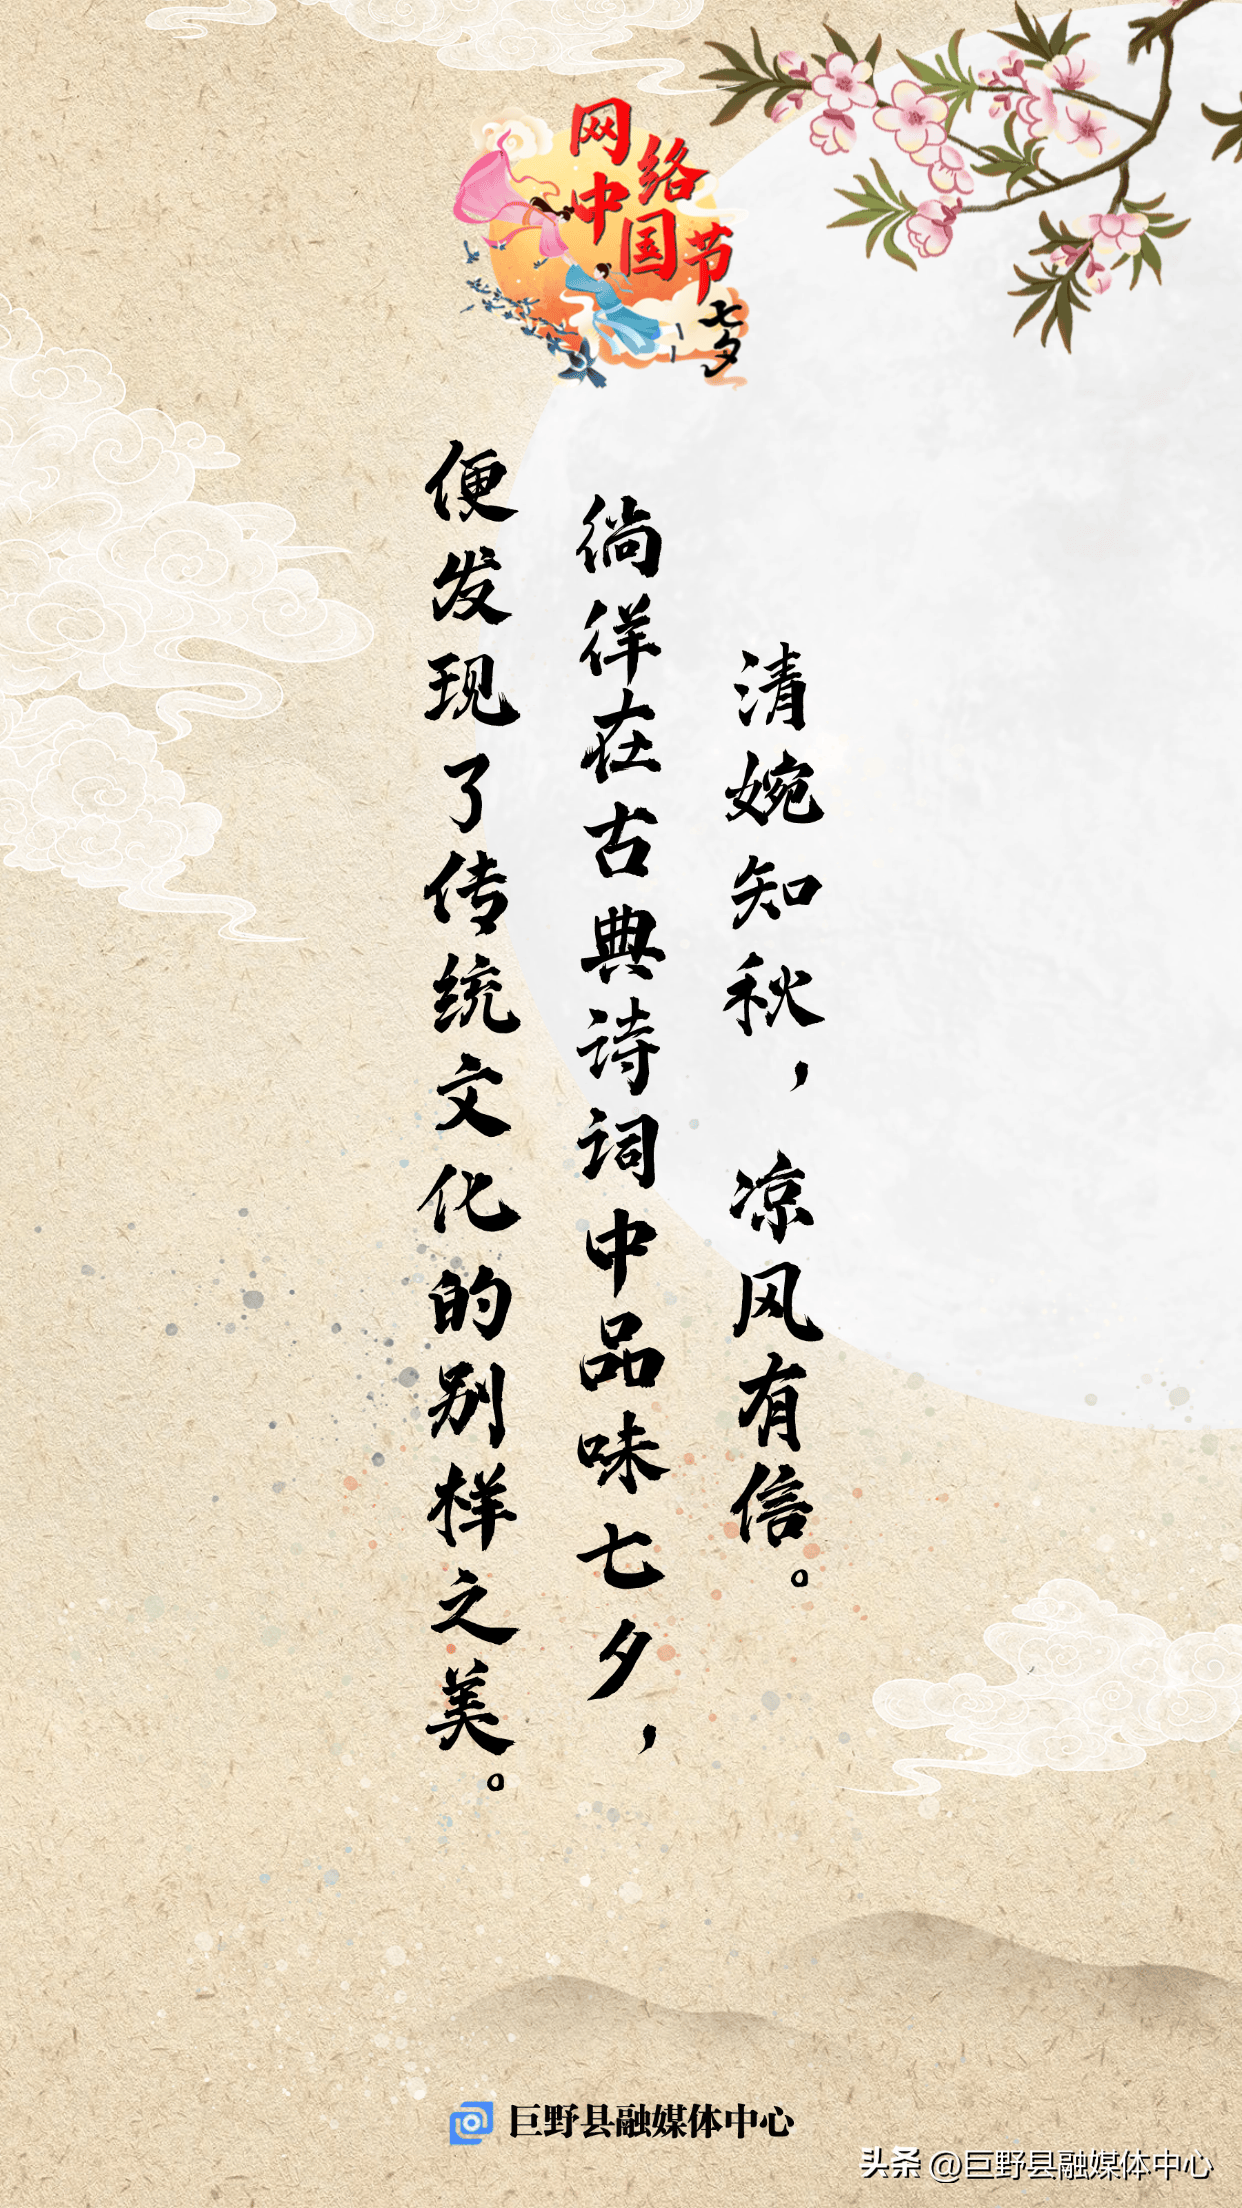 网络
中国节
七夕
清婉知秋，凉风有信。
徜徉在古典诗词中品味七夕，
便发现了传统文化的别样之美。
巨野县融媒体中心
头条 @巨野县融媒体中心